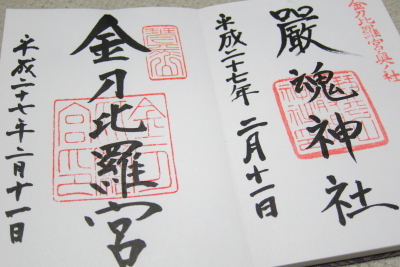 金刀比羅宮奥ノ社
嚴魂神社
平成二十七年二月十一日
金刀比羅宮
平成二十七年二月十一日